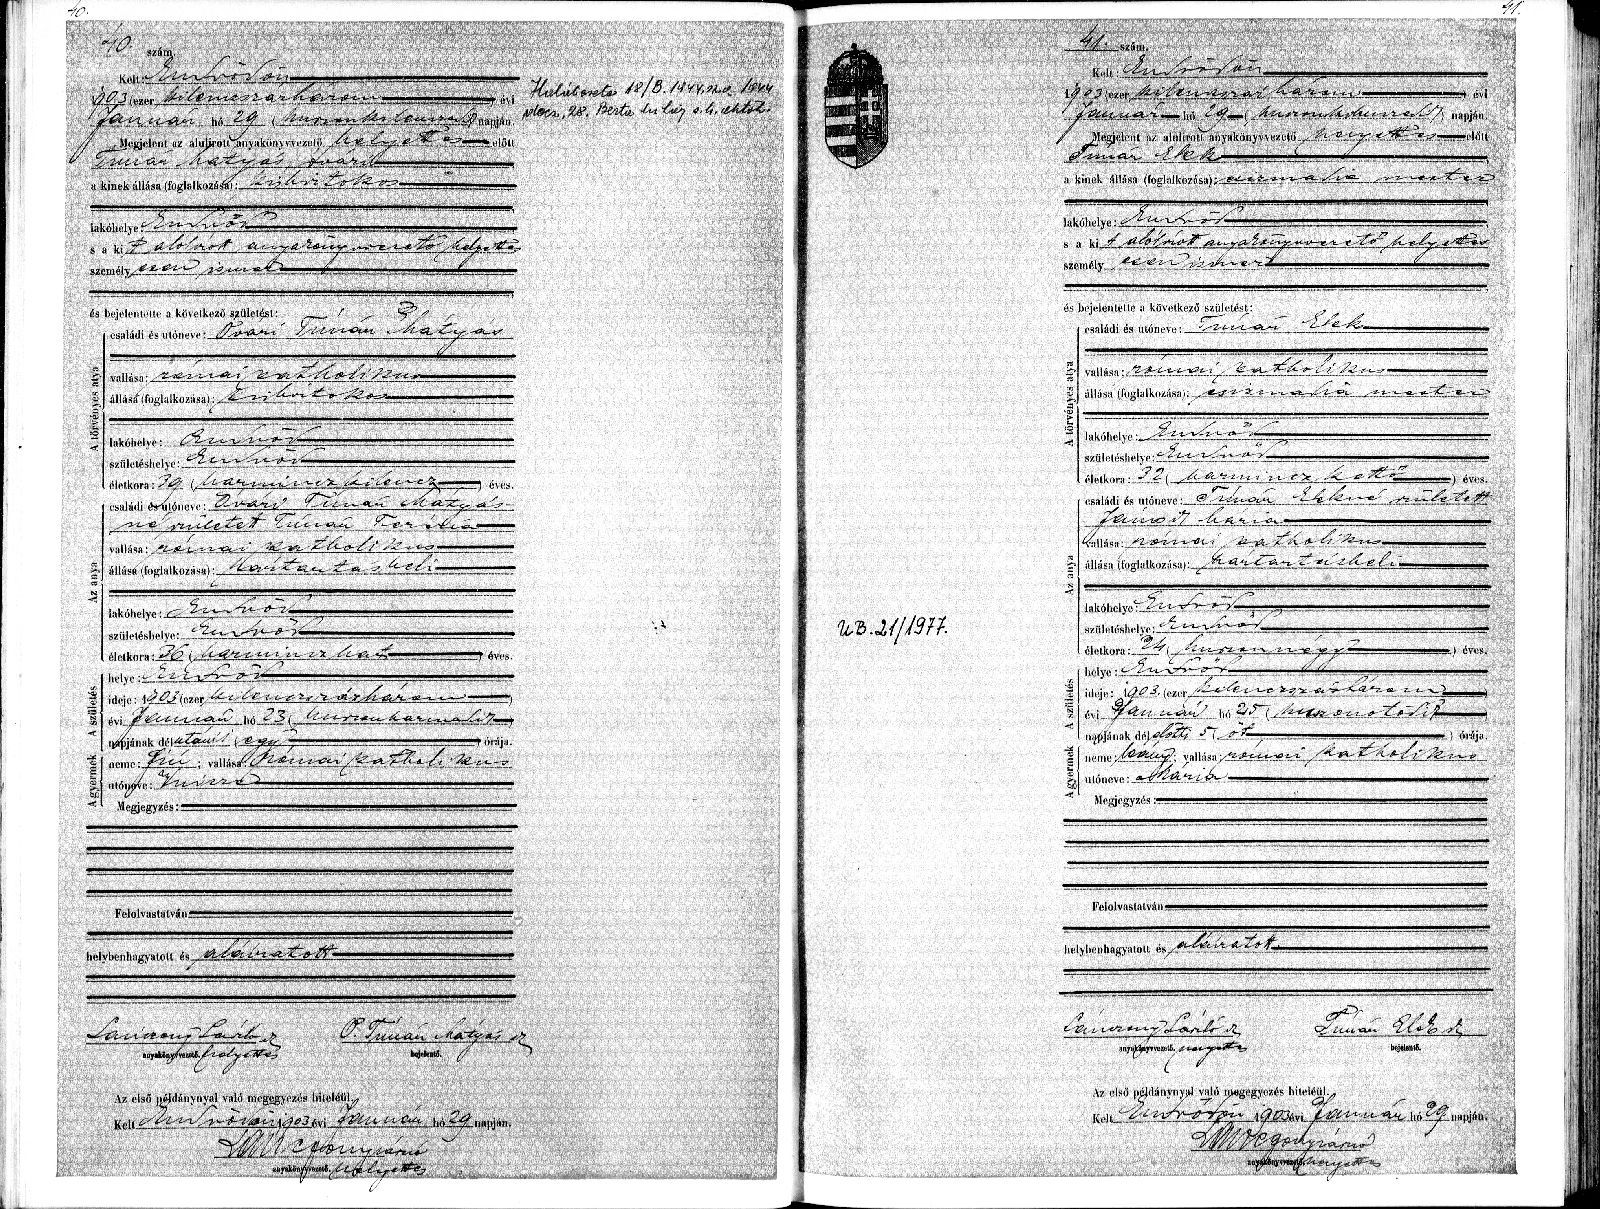 40.
40. szám.
Kelt Endrődön
1903 (ezer kilenczszázhárom) évi
Január hó 29 (huszonkilenczedik) napján.
Megjelent az alulirott anyakönyvvezető helyettes előtt
Timár Mátyás óvári
a kinek állása (foglalkozása): kisbirtokos
lakóhelye Endrőd
s a ki t alólirott anyakönyvvezető helyettes
személyesen ismer
és bejelentette a következő születést:
A törvényes atya
családi és utóneve: Óvári Timár Mátyás
vallása: római katholikus
állása (foglalkozása): kisbirtokos
lakóhelye: Endrőd
születéshelye: Endrőd
életkora: 39 (harminczkilencz) éves.
Az anya
családi és utóneve: Óvári Timár Mátyás-
né született Timár Terézia
vallása: római katholikus
állása (foglalkozása): háztartásbeli
lakóhelye: Endrőd
születéshelye: Endrőd
életkora: 36 (harminczhat) éves.
A születés
helye: Endrőd
ideje: 1903 (ezer kilenczszázhárom)
évi Január hó 23 (huszonharmadik)
napjának délutáni (egy) órája.
A gyermek
neme: fiú; vallása: római katholikus
utóneve: Vincze
Megjegyzés:
Felolvastatván
helybenhagyatott és aláiratott
László
anyakönyvvezető. helyettes
Ó. Timár Mátyás
bejelentő.
Az első példánynyal való megegyezés hiteléül.
Kelt Endrődön 1903 évi Január hó 29 napján.
anyakönyvvezető. helyettes
Halálozás 18/B. 1944. 1944
28.
41.
41. szám.
Kelt: Endrődön
1903 (ezer kilenczszázhárom) évi
Január hó 29 (huszonkilenczedik) napján.
Megjelent az alulirott anyakönyvvezető helyettes előtt
Timár Elek
a kinek állása (foglalkozása): csizmadia mester
lakóhelye: Endrőd
s a ki t alólirott anyakönyvvezető helyettes
személyesen ismer
és bejelentette a következő születést:
A törvényes atya
családi és utóneve: Timár Elek
vallása: római katholikus
állása (foglalkozása): csizmadia mester
lakóhelye: Endrőd
születéshelye: Endrőd
életkora: 32 (harmincz kettő) éves.
Az anya
családi és utóneve: Timár Elekné született
Mária
vallása: római katholikus
állása (foglalkozása): háztartásbeli
lakóhelye: Endrőd
születéshelye: Endrőd
életkora: 24 (huszonnégy) éves.
A születés
helye: Endrőd
ideje: 1903 (ezer kilenczszázhárom)
évi Január hó 25 (huszonötödik)
napjának délelőtti 5 (öt) órája.
A gyermek
neme: leány; vallása: római katholikus
utóneve: Mária
Megjegyzés:
Felolvastatván
helybenhagyatott és aláiratott
László
anyakönyvvezető. helyettes
Timár Elek
bejelentő.
Az első példánynyal való megegyezés hiteléül.
Kelt Endrődön 1903 évi Január hó 29 napján.
anyakönyvvezető. helyettes
UB.21/1977.